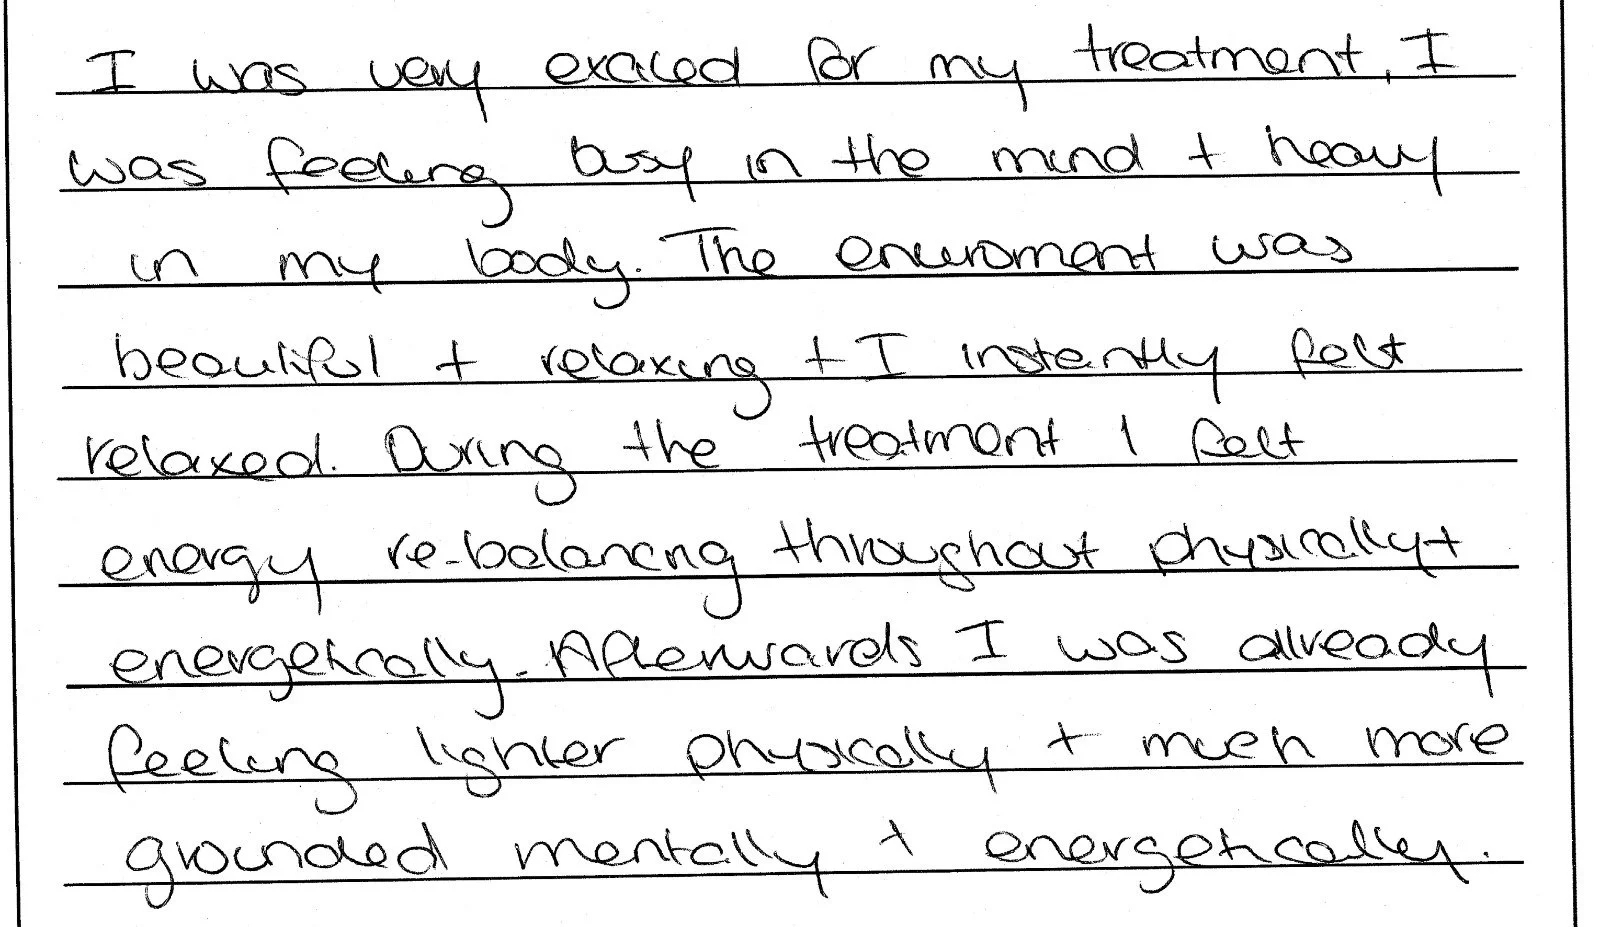 I was very excited for my treatment, I
was feeling busy in the mind + heavy
in my body. The enviroment was
beautiful + relaxing + I instantly felt
relaxed. During the treatment I felt
energy re-balancing throughout physically +
energetically. Afterwards I was allready
feeling lighter physically + much more
grounded mentally + energetically.